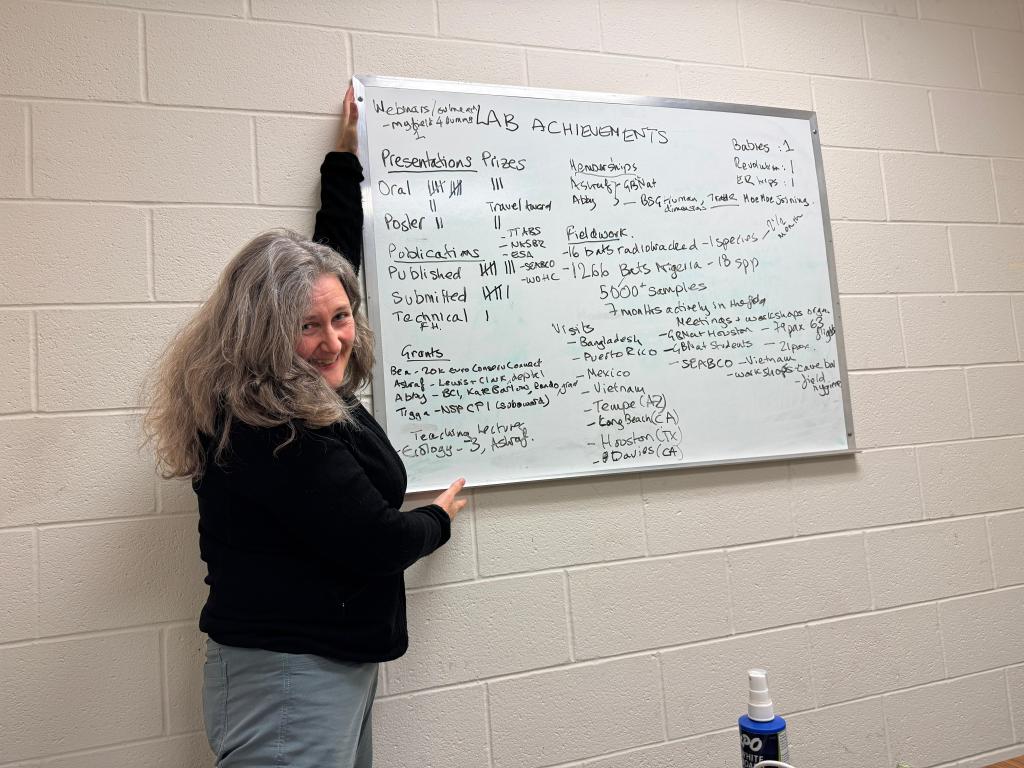 Webinars/
LAB ACHIEVEMENTS
1
Presentations Prizes
Oral 𝍸 𝍸 III
II Travel award
Poster II II
- TTABS
- NASBR
- ESA
- SEABCO
- WOHC
Publications
Published 𝍸 III
Submitted 𝍸 I
Technical I
Grants
Ben - 20k euro Conserv Connect
Ashraf - Lewis + Clark,
Abby - BCI, Kate Barlow,
Tigga - NSF CPI (subaward)
Teaching Lecture
- Ecology - 3, Ashraf.
Memberships
Ashraf - GBNat
Abby - BSG-Human dimensions,
Joining.
Babies : 1
Revolution : 1
ER trips : 1
Fieldwork.
- 16 bats radiotracked - 1 species
month
- 1266 Bats Nigeria - 18 spp
5000+ samples
7 months actively in the field
Visits
- Bangladesh
- Puerto Rico
- Mexico
- Vietnam
- Tempe (AZ)
- Long Beach (CA)
- Houston (TX)
- Davies (CA)
Meetings + workshops organ.
- GBNat Houston - 79 pax 63 flights
- GBNat Students - 21 pax.
- SEABCO - Vietnam
- workshops - cave bat
- field hygiene